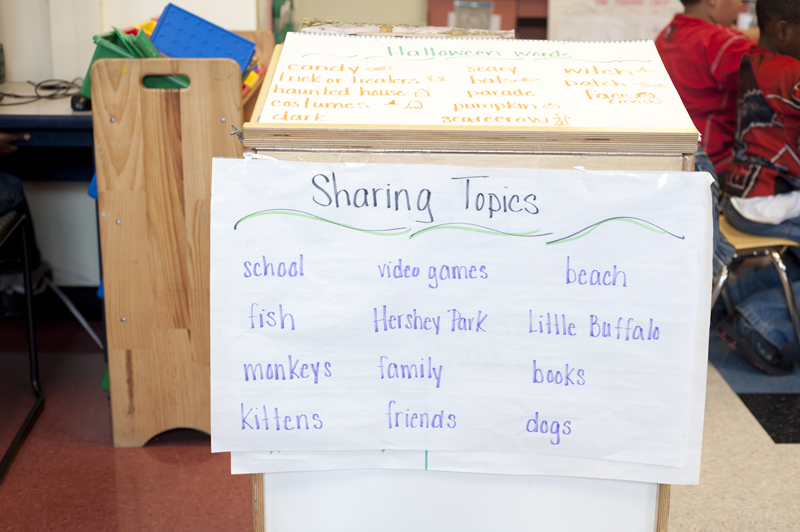 Halloween words
candy scary witch
trick or treaters bats patch
haunted house parade face
costumes pumpkin
dark scarecrow
Sharing Topics
school video games beach
fish Hershey Park Little Buffalo
monkeys family books
kittens friends dogs